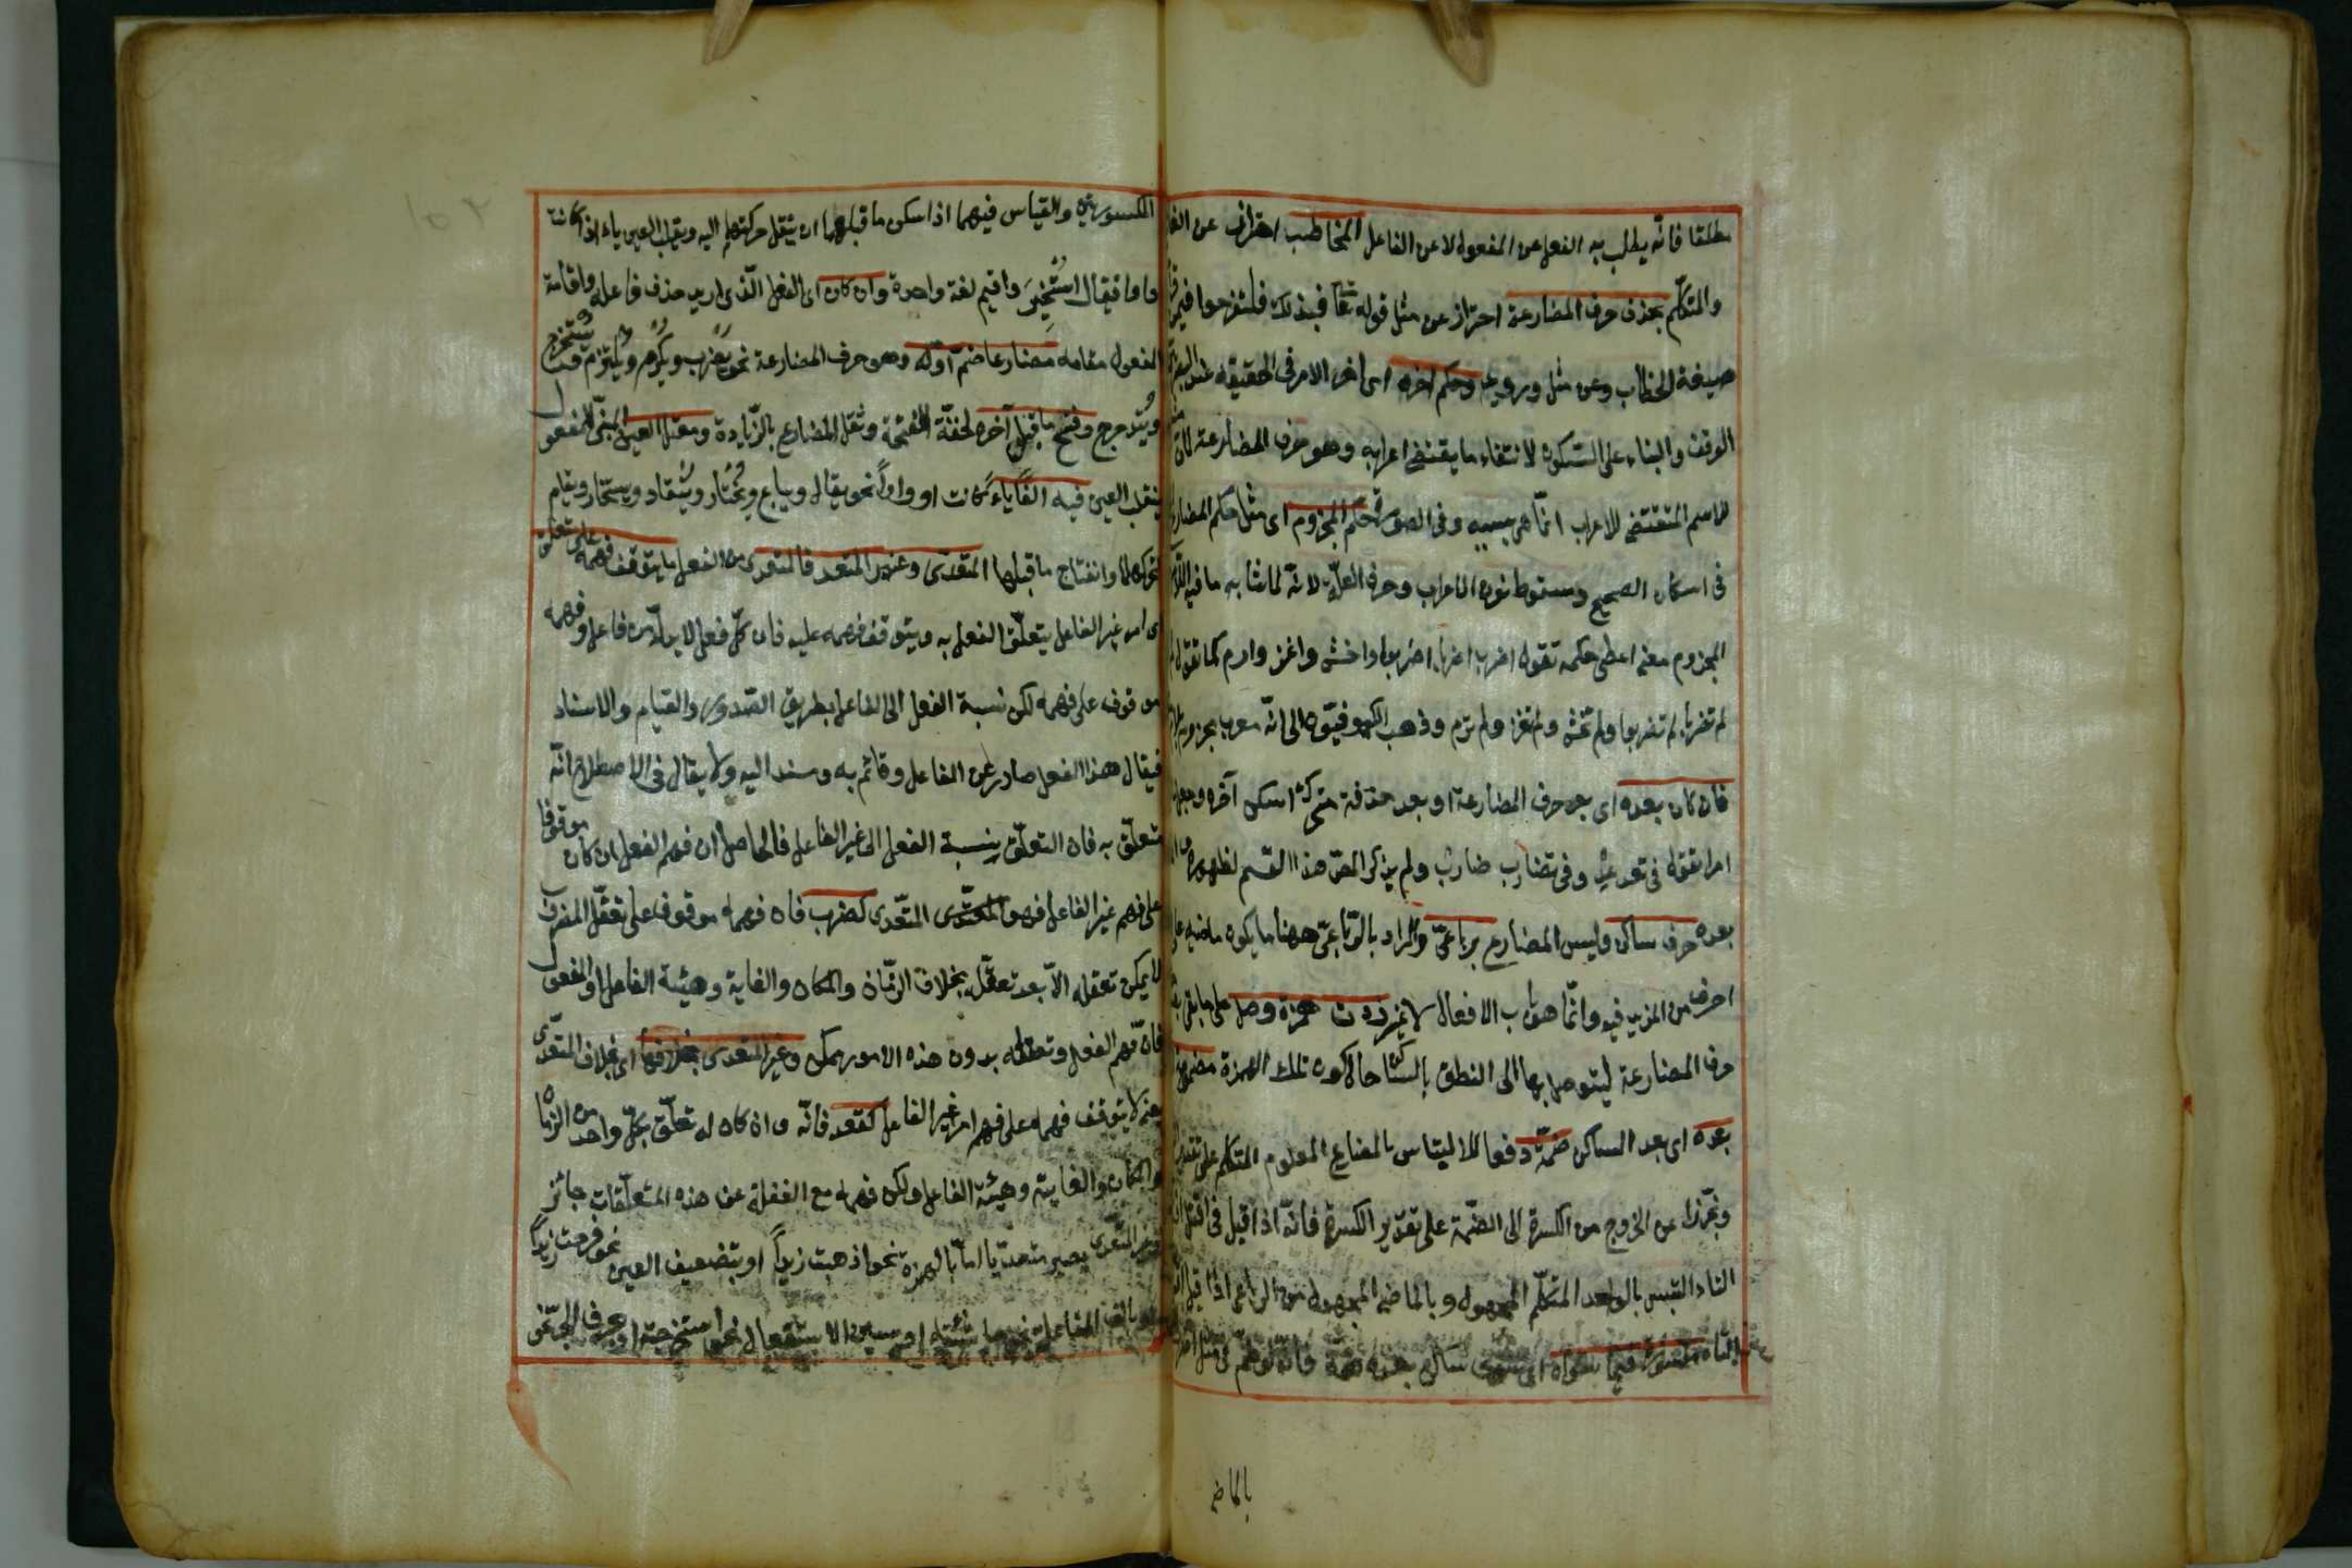 مطلقا فانّه يطلب به الفعل عن المفعول لا عن الفاعل المخاطب احتراز عن
والمتكلّم بحذف حرف المضارعة احتراز عن مثل قوله تعا فبذلك فلتفرحوا
صيغة الخطاب وعن مثل وحكم اخره اى اخر الامر فى الحقيقة عند
الوقف والبناء على السّكون لانتفاء ما يقتضى اعرابه وهو حرف المضارعة لانّ
للاسم المقتضى للاعراب انّما هى بسببه وفى الصورة حكم المجزوم اى مثل حكم
فى اسكان الصحيح وسقوط نون الاعراب وحرف العلّة لانّه لما شابه ما فيه
المجزوم معنى اعطى حكمه تقول اضرب اضربا اضربوا واخش واغز وارم كما تقول
لم تضربا لم تضربوا ولم تخش ولم تغز ولم ترم وذهب الكوفيّون الى انّه معرب مجزوم
فان كان بعده اى بعد حرف المضارعة او بعد حذفه متحرّك اسكن آخره
امرا تقول فى تعد عد وفى تضارب ضارب ولم يذكر المص هذا القسم لظهوره
بعده حرف ساكن وليس المضارع برباعىّ والمراد بالرّباعىّ ههنا ما يكون ماضيه
احرف من المزيد فيه وانّما هو باب الافعال لا غير زدت همزة وصل على ما بقى
حرف المضارعة ليتوصل بها الى النطق بالساكن حال كون تلك الهمزة مضمومة
بعده اى بعد الساكن ضمّة دفعا للالتباس بالمضارع المعلوم المتكلم على تقدير
وتحرّزا عن الخروج من الكسرة الى الضمّة على تقدير الكسرة فانّه اذا قيل فى اقتل
التاء التبس بالواحد المتكلّم المجهول وبالماضى المجهول من الرباعى اذا قيل
مكسورة فيما سواه اى سوى ساكن بعده ضمة
بالماضى
المكسورتين والقياس فيهما اذا سكن ما قبلهما ان ينقل حركتهما اليه ويقلب العين ياء اذا كانت
واوا فيقال استُخيرَ واقيم لغة واحدة وان كان اى الفعل الّذى اريد حذف فاعله واقامة
المفعول مقامه مضارعا ضمّ اوّله وهو حرف المضارعة نحو يُضرب ويُكرم ويُلتزم ويُستخرج
ويُتدحرج وفتح ما قبل آخره لخفّة الفتحة وثقل المضارع بالزّيادة ومعتل العين المبنىّ للمفعول
ينقلب العين فيه الفًا ياءً كانت او واوًا نحو يقال ويباع ويُختار ويُنقاد ويستخار ويقام
لتحركها وانفتاح ما قبلها المتعدّى وغير المتعد فالمتعدى من الفعل ما يتوقف فهمه على تعلق
اى امر غير الفاعل يتعلّق الفعل به ويتوقف فهمه عليه فان كلّ فعل لا بدّ له من فاعل وفهمه
موقوف على فهمه لكن نسبة الفعل الى الفاعل بطريق الصّدور والقيام والاسناد
فيقال هذا الفعل صادر عن الفاعل وقائم به ومسند اليه ولا يقال فى الاصطلاح انّه
متعلّق به فان التعلّق نسبة الفعل الى غير الفاعل فالحاصل ان فهم الفعل ان كان موقوفا
على فهم غير الفاعل فهو المتعدّى كضرب فان فهمه موقوف على تعقّل المضروب
لا يمكن تعقله الاّ بعد تعقّله بخلاف الزّمان والمكان والغاية وهيئة الفاعل او المفعول
فانّ فهم الفعل وتعقله بدون هذه الامور ممكن وغير المتعدى بخلافه اى بخلاف المتعدّى
يعنى لا يتوقف فهمه على فهم امر غير الفاعل كقعد فانّه وان كان له تعلّق بكلّ واحد من الزمان
والمكان والغاية وهيئة الفاعل ولكن فهمه مع الغفلة عن هذه المتعلّقات جائز
وغير المتعدّى يصير متعديّا امّا بالهمزة نحو اذهبت زيداً او بتضعيف العين نحو فرحت زيداً
او بالف المفاعلة نحو ماشيته او بسين الاستفعال نحو استخرجته او بحرف الجرّ نحو